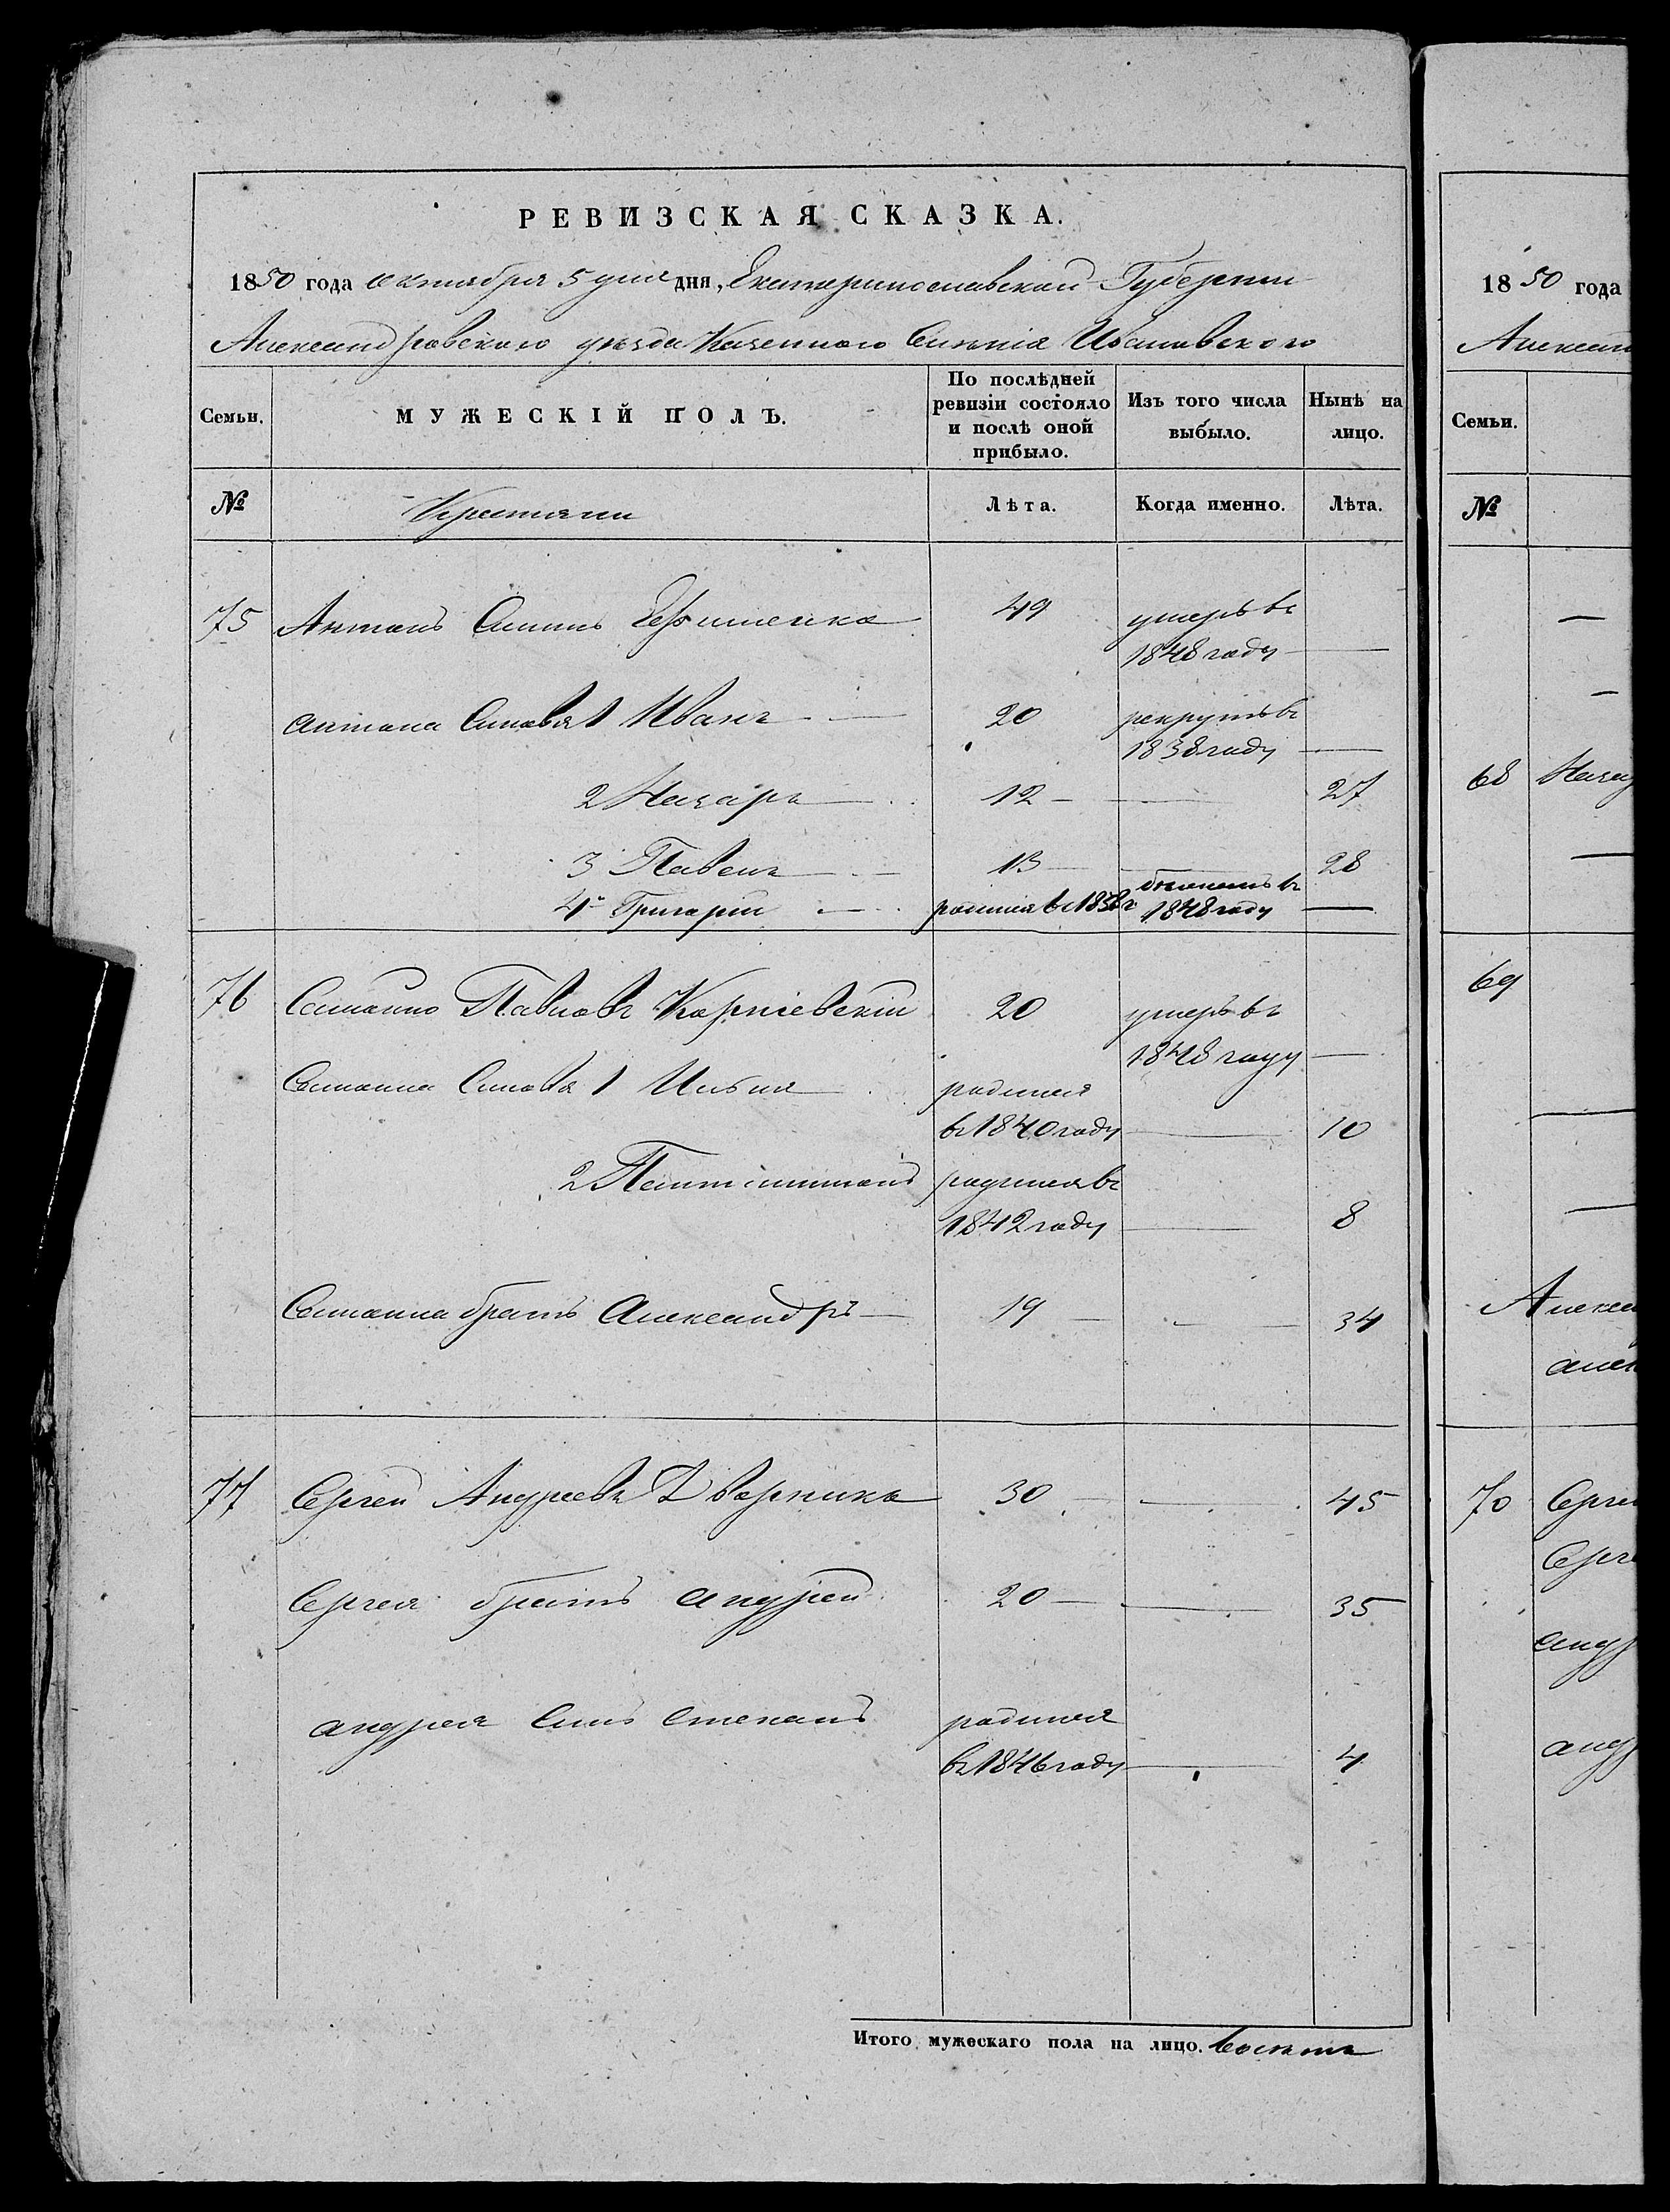 РЕВИЗСКАЯ СКАЗКА.
1850 года октября 5 дня дня, Екатеринославской Губернии
Александровского уезда Казенного Селенія Ивановского
Семьи.
МУЖЕСКІЙ ПОЛЪ.
По послѣдней ревизіи состояло и послѣ оной прибыло.
Изъ того числа выбыло.
Нынѣ на лицо.
№
Крестяни
Лѣта.
Когда именно.
Лѣта.
75 Антонъ 49 умеръ въ
1848 году —
Антона Синовя 1 Иванъ — 20 рекрутъ въ
1838 году —
2 Назаръ — 12 — — 27
3 Павелъ — 13 — — 28
4 Григорій — родился въ 183 г. 1848 году —
76 Самойло Павловъ Корніевскій 20 умеръ въ
1848 году —
Самойла Синовя 1 Илья родился
въ 1840 году — 10
2 родился въ
1842 году — 8
Самойла братъ Александръ — 19 — — 34
77 Сергей Андреевъ Дворника 30 — — 45
Сергея братъ Андрей 20 — — 35
Андрея Синъ Степанъ родился
въ 1846 году — 4
Итого мужескаго пола на лицо. восемь
1850 года
Алексан
Семьи.
№
—
—
68 Назар
—
69
—
—
Алекса
алек
70 Серге
Серге
андр
андр